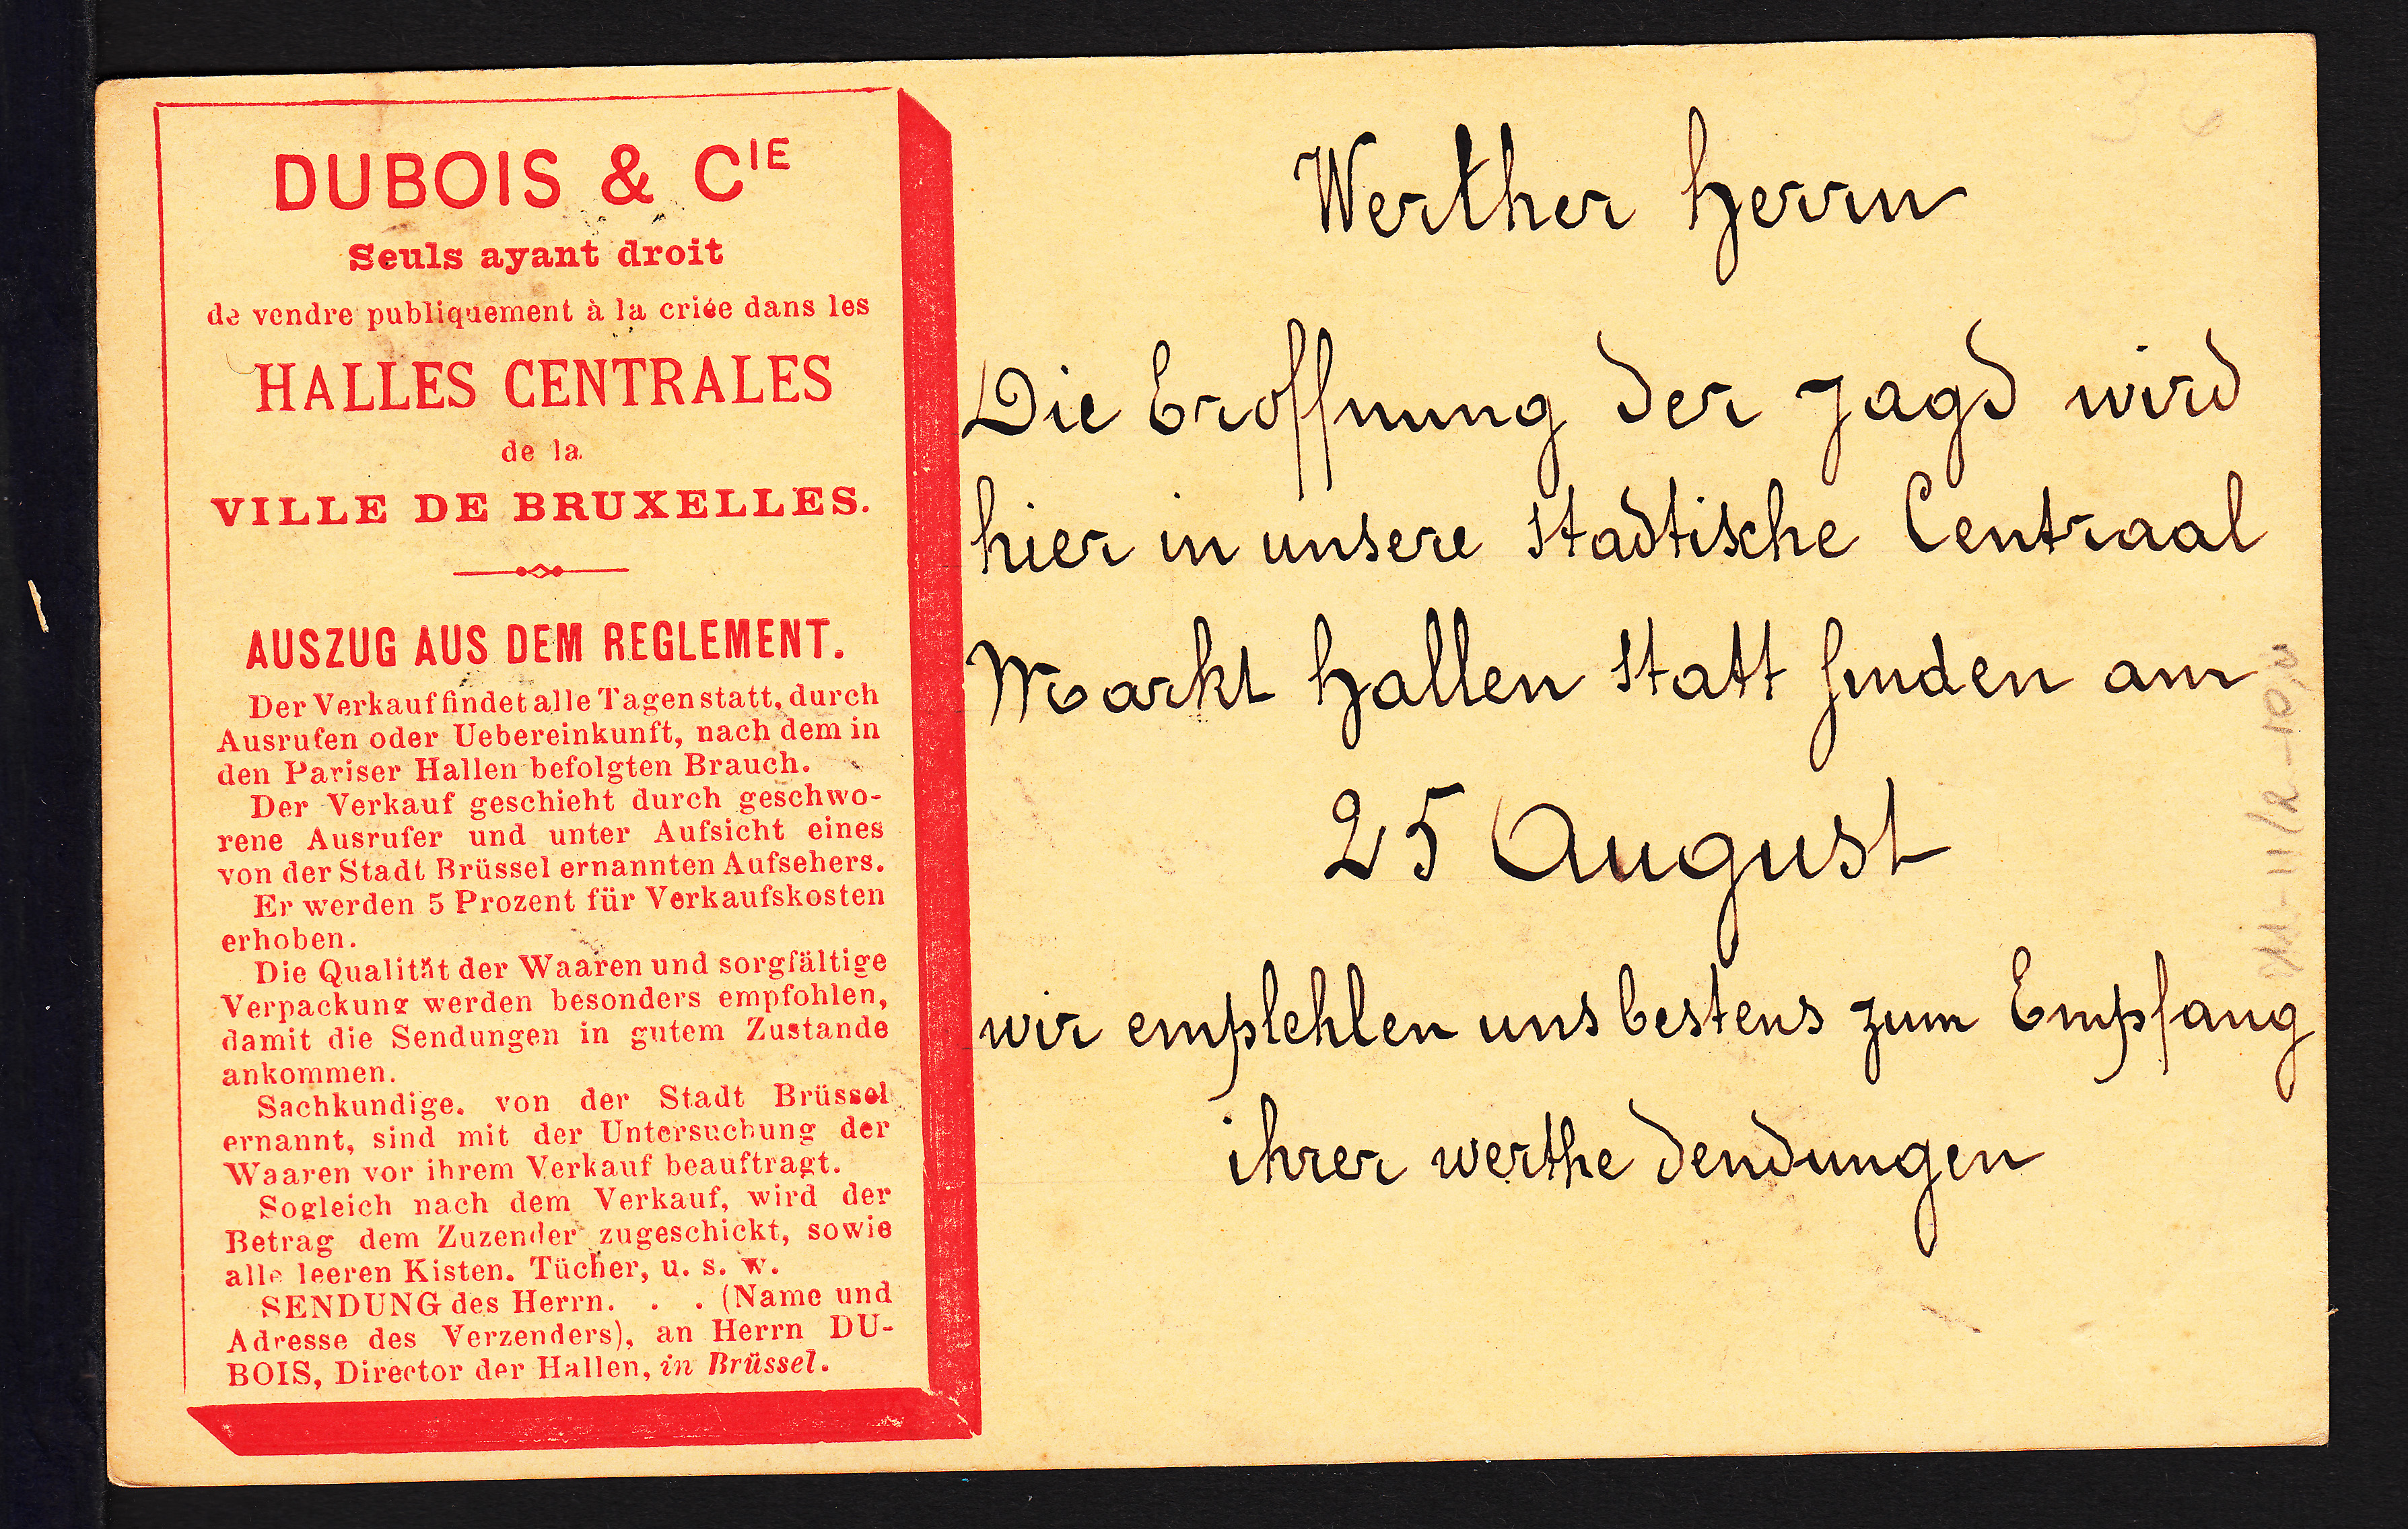 DUBOIS & CIE
Seuls ayant droit
de vendre publiquement à la criée dans les
HALLES CENTRALES
de la
VILLE DE BRUXELLES.
AUSZUG AUS DEM REGLEMENT.
Der Verkauf findet alle Tagen statt, durch
Ausrufen oder Uebereinkunft, nach dem in
den Pariser Hallen befolgten Brauch.
Der Verkauf geschieht durch geschwo-
rene Ausrufer und unter Aufsicht eines
von der Stadt Brüssel ernannten Aufsehers.
Er werden 5 Prozent für Verkaufskosten
erhoben.
Die Qualität der Waaren und sorgfältige
Verpackung werden besonders empfohlen,
damit die Sendungen in gutem Zustande
ankommen.
Sachkundige. von der Stadt Brüssel
ernannt, sind mit der Untersuchung der
Waaren vor ihrem Verkauf beauftragt.
Sogleich nach dem Verkauf, wird der
Betrag dem Zuzender zugeschickt, sowie
alle leeren Kisten. Tücher, u. s. w.
SENDUNG des Herrn. . . (Name und
Adresse des Verzenders), an Herrn DU-
BOIS, Director der Hallen, in Brüssel.
Werther Herrn
Die Eroffnung der Jagd wird
hier in unsere stadtische Centraal
Markt Hallen statt finden am
25 August
wir emplehlen uns bestens zum Empfang
ihrer werthe Sendungen